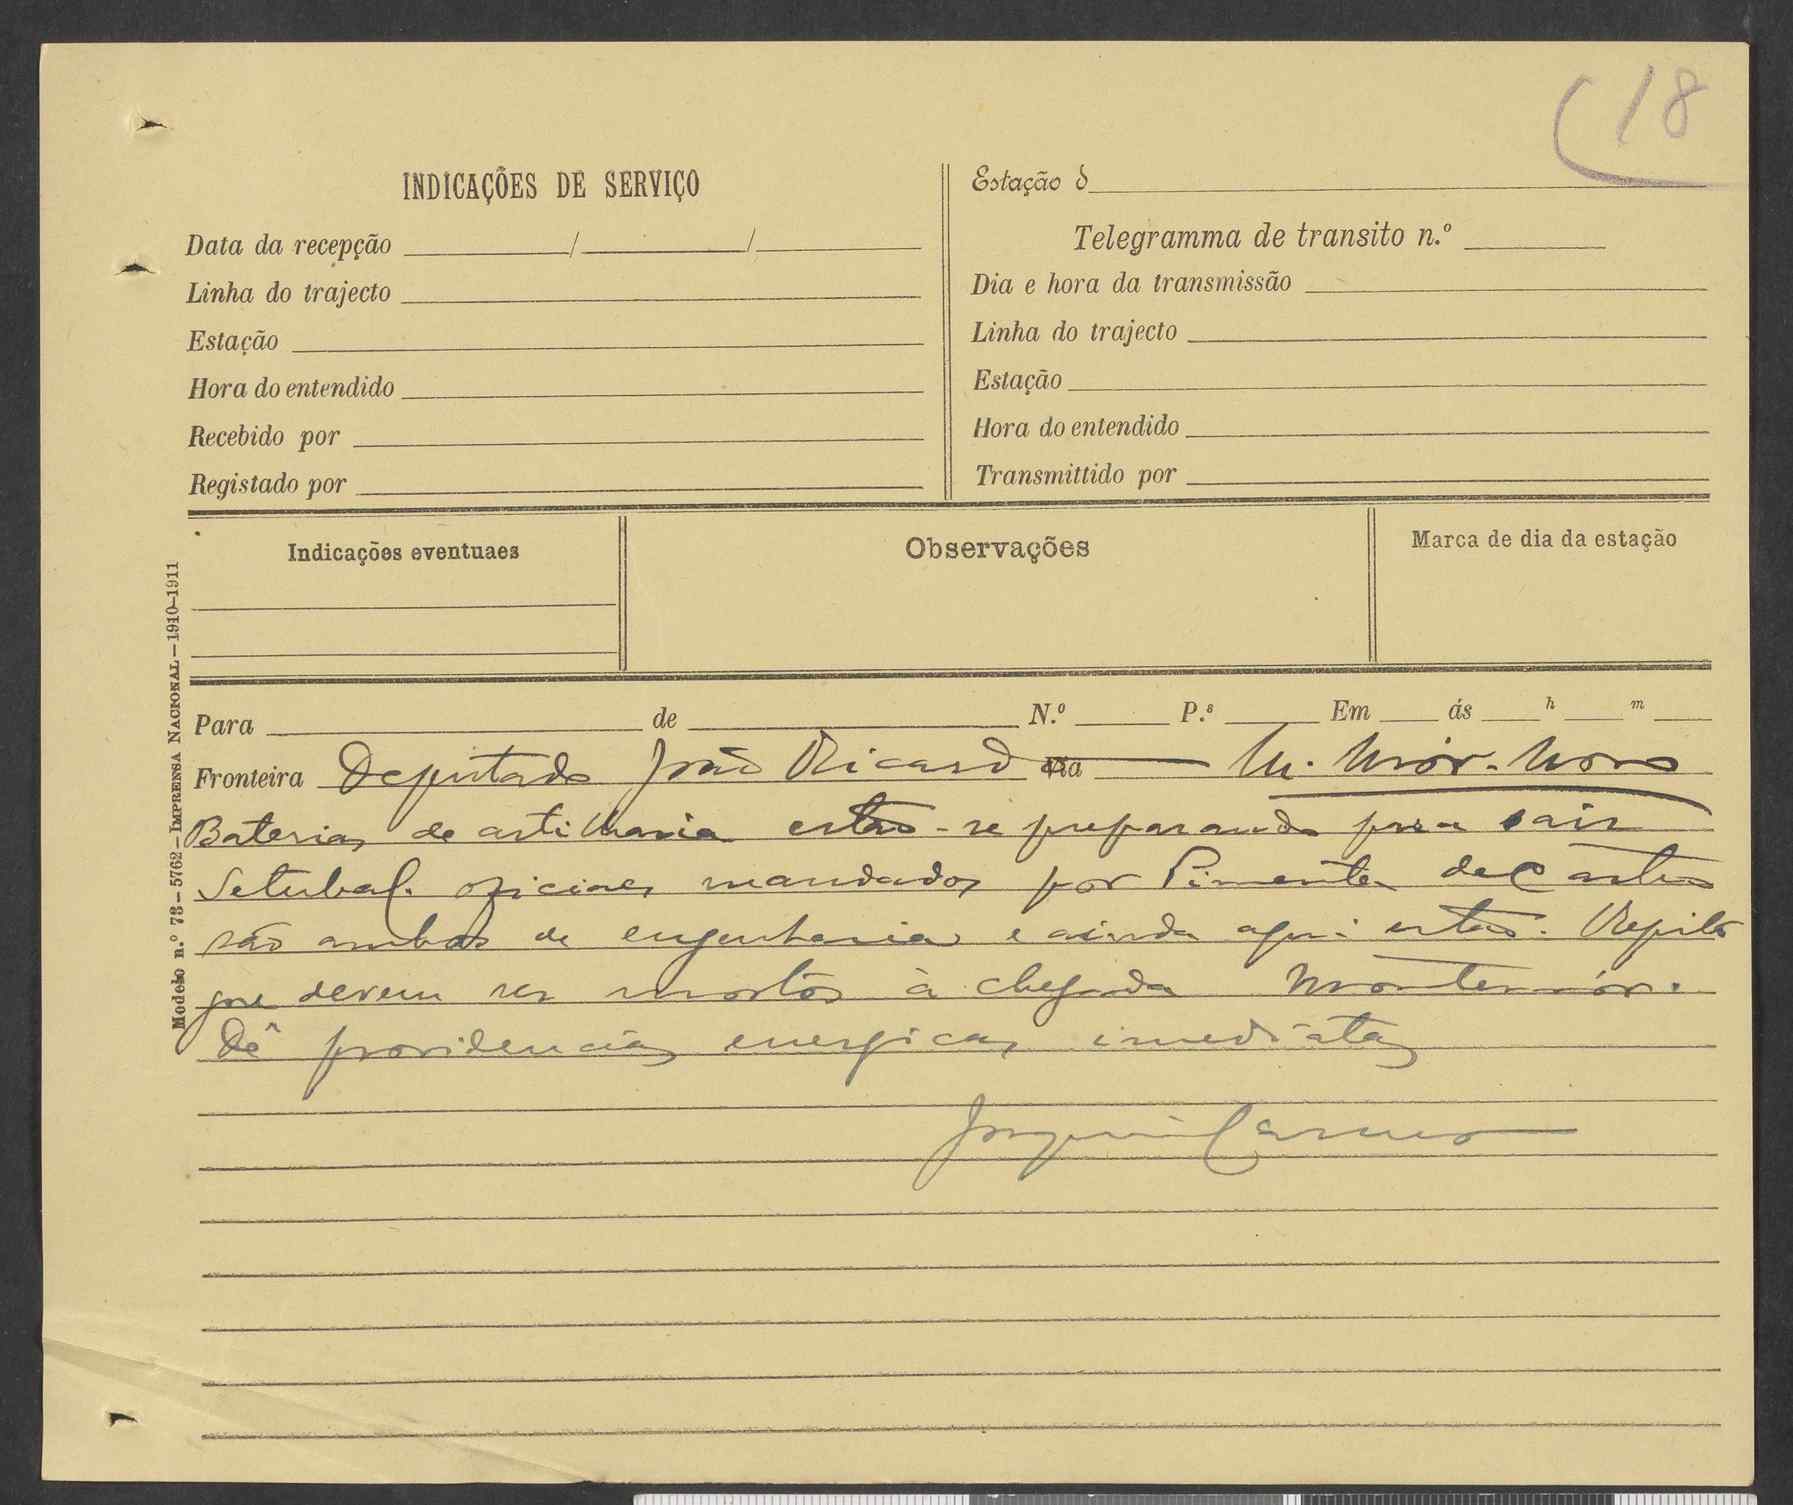 (18
INDICAÇÕES DE SERVIÇO
Data da recepção / /
Linha do trajecto
Estação
Hora do entendido
Recebido por
Registado por
Estação d
Telegramma de transito n.º
Dia e hora da transmissão
Linha do trajecto
Estação
Hora do entendido
Transmittido por
Indicações eventuaes
Observações
Marca de dia da estação
Modelo n.º 73—5762—IMPRENSA NACIONAL—1910-1911
Para de N.º P.ª Em ás h m
Fronteira Deputado João Ricardo via M. Mór-Novo
Baterias de artilharia estão-se preparando para sair
Setubal. oficiaes mandados por Pimenta de Castro
são ambos de engenharia e ainda aqui estão. Repito
que devem ser mortos à chegada Montemór.
Dê providencias energicas imediatas
Joaquim